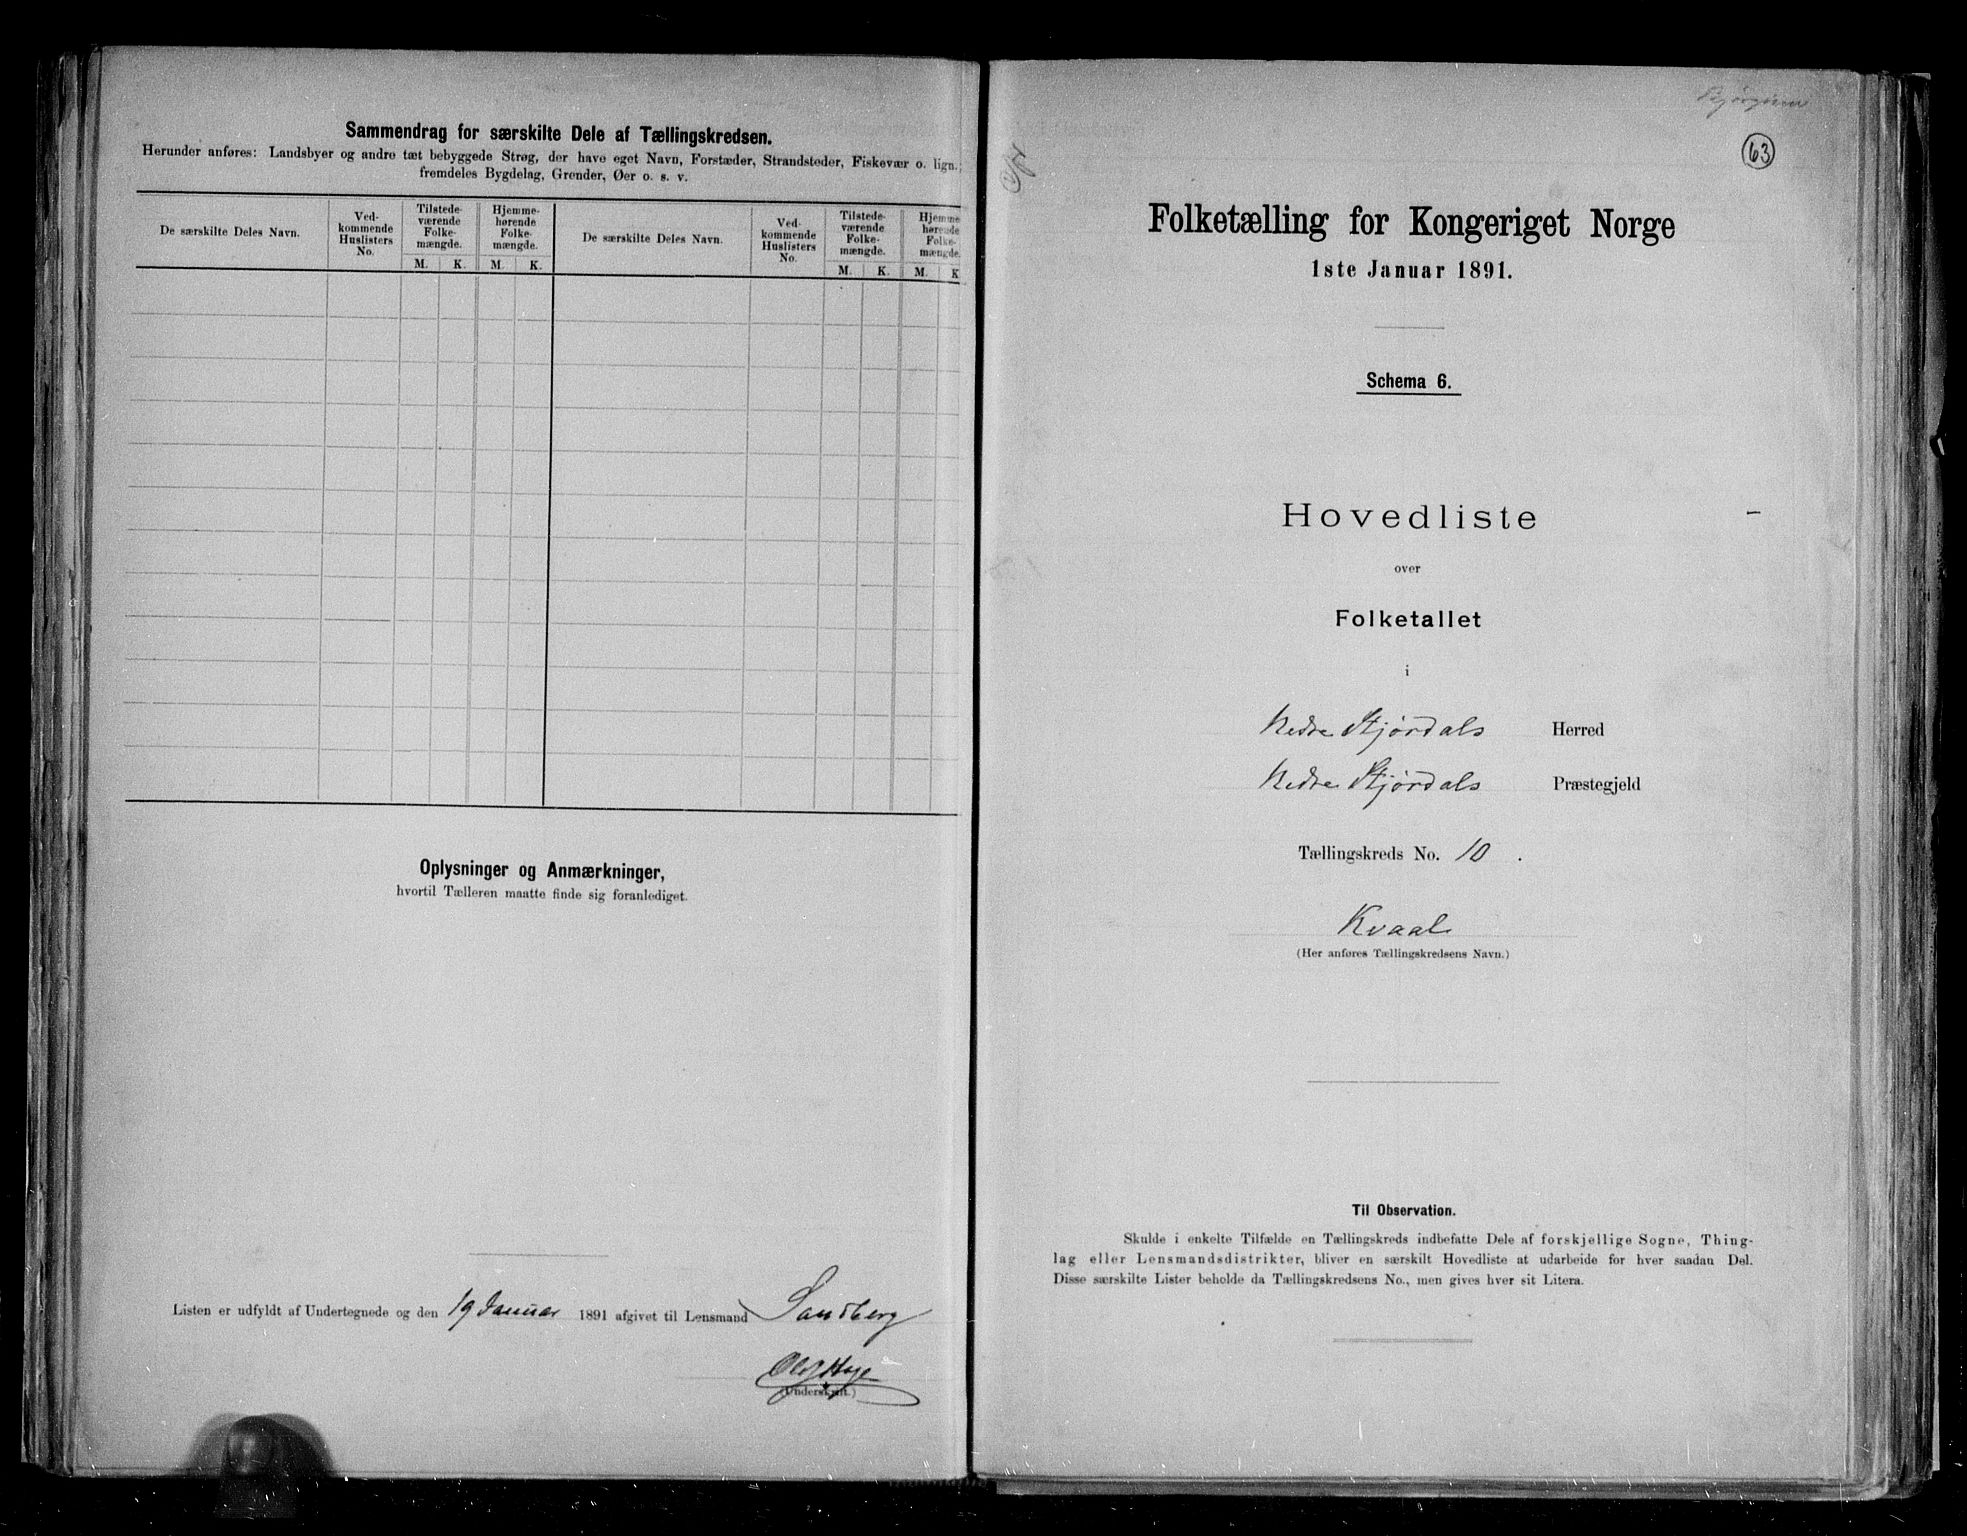 Sammendrag for særskilte Dele af Tællingskredsen.
Herunder anføres: Landsbyer og andre tæt bebyggede Strøg, der have eget Navn, Forstæder, Strandsteder, Fiskevær o. lign.;
fremdeles Bygdelag, Grender, Øer o. s. v.
De særskilte Deles Navn.
Ved-
kommende
Huslisters
No.
Tilstede-
værende
Folke-
mængde.
M. K.
Hjemme-
hørende
Folke-
mængde.
M. K.
De særskilte Deles Navn.
Ved-
kommende
Huslisters
No.
Tilstede-
værende
Folke-
mængde.
M. K.
Hjemme
hørende
Folke-
mængde.
M. K
Oplysninger og Anmærkninger,
hvortil Tælleren maatte finde sig foranlediget.
Listen er udfyldt af Undertegnede og den 19 Januar 1891 afgivet til Lensmand Sandberg
(Underskrift.)
63
Folketælling for Kongeriget Norge
1ste Januar 1891.
Schema 6.
Hovedliste
over
Folketallet
i
Nedre Stjørdals Herred
Nedre Stjørdals Præstegjeld
Tællingskreds No. 10.
Kvaal
(Her anføres Tællingskredsens Navn.)
Til Observation.
Skulde i enkelte Tilfælde en Tællingskreds indbefatte Dele af forskjellige Sogne, Thing-
lag eller Lensmandsdistrikter, bliver en særskilt Hovedliste at udarbeide for hver saadan Del.
Disse særskilte Lister beholde da Tællingskredsens No., men gives hver sit Litera.